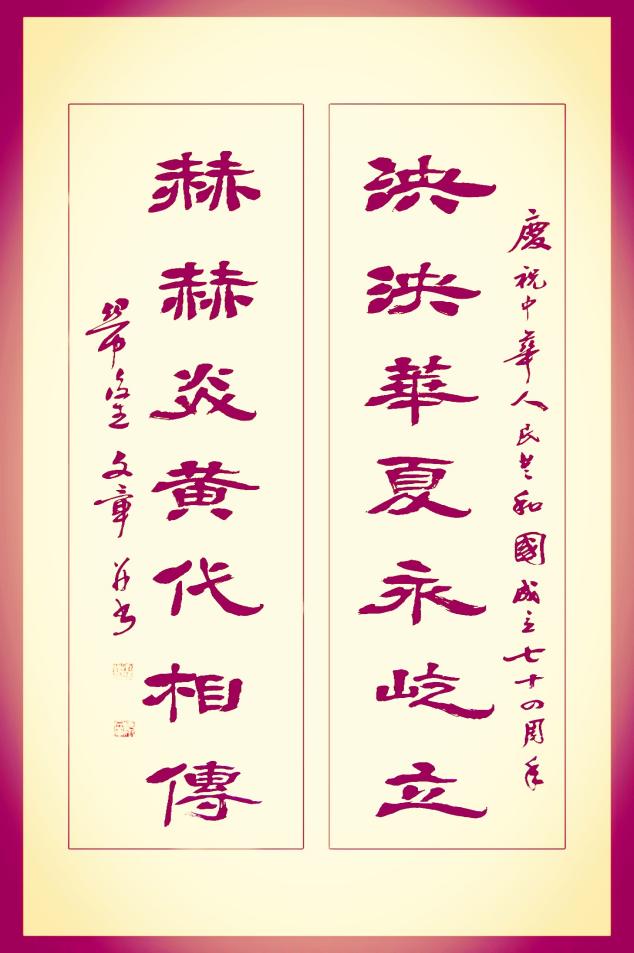 慶祝中華人民共和國成立七十四周年
泱泱華夏永屹立
赫赫炎黃代相傳
文章并书